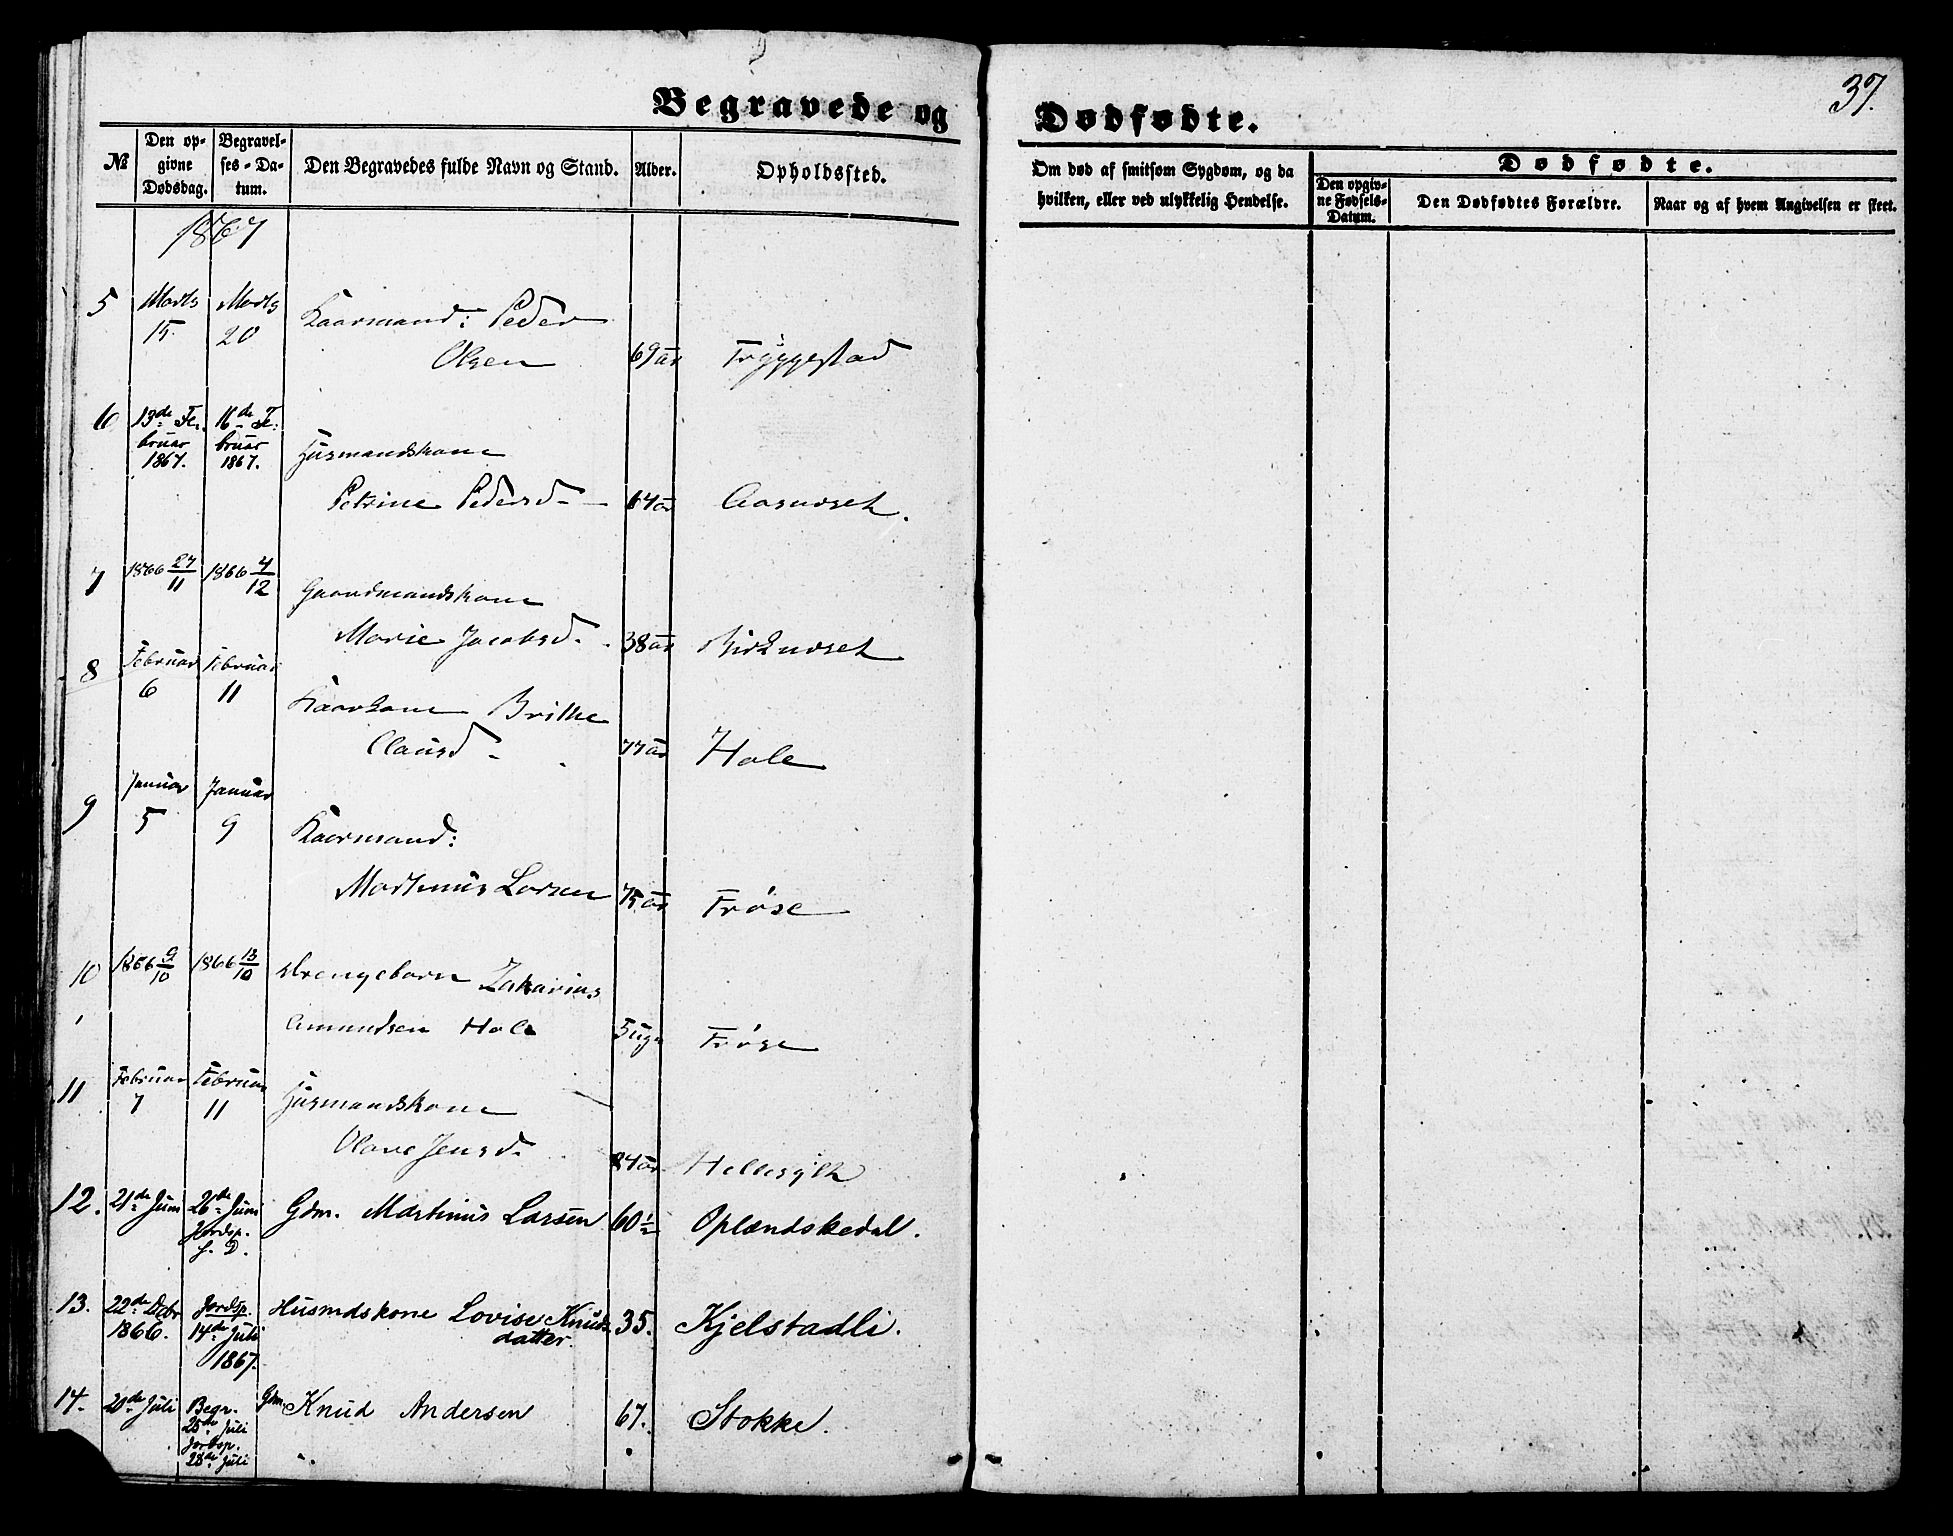 37.
Begravede og Dødfødte.
№ Den opgivne Dødsdag. Begravelses-Datum. Den Begravedes fulde Navn og Stand. Alder. Opholdssted. Om død af smitsom Sygdom, og da hvilken, eller ved ulykkelig Hendelse. Dødfødte.
Den opgivne Fødsels-Datum. Den Dødfødtes Forældre. Naar og af hvem Angivelsen er skeet.
1867
5 Marts 15. Marts 20 Kaarmand: Peder
Olsen 69 aar Tryggestad
6 13de Februar 1867. 16de Februar 1867. Husmandskone
Petrine Pedersd. 64 aar Aasnæset.
7 1866 27/11 1866 4/12 Gaardmandskone
Marie Jacobsd. 38 aar
8 Februar 6 Februar 11 Kaarkone Brithe
Clausd. 77 aar Hole
9 Januar 5 Januar 9 Kaarmand:
Marthinus Larsen 75 aar Frøse
10 1866 9/10 1866 13/10 drengebarn Zakarias
Amundsen Hole 5 ug. Frøse
11 Februar 7 Februar 11 Husmandskone
Olave Jensd. 84 aar Hellesylt
12. 21de Juni 26de Juni Jordsp. s. D. Gdm. Martinus Larsen 60 1/2 Oplændskedal.
13. 22de Decbr 1866. Jordsp. 14de Juli 1867. Husmdskone Lovise Knuds-
datter. 35. Kjelstadli.
14. 20de Juli Begr. 25de Juli Jordsp. 28de Juli Gdm. Knud Andersen 67. Stokke.